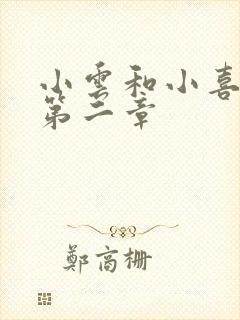 小雲和小喜
第二章
鄭高柵